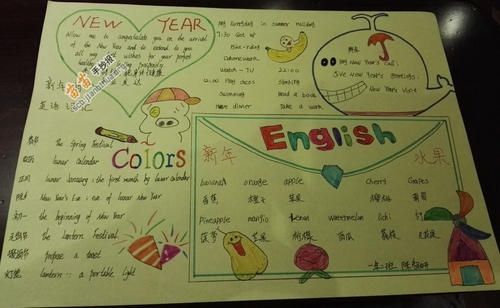 NEW YEAR
Allow me to congratulate you on the arrival
of the New Year and to extend to you
all my best wishes for your perfect
healthy
新年
英语
My everyday in summer holiday
7:30 Get up
Bike-riding
Do homework
watch-TV 22:00
12:00 Play chess sleeping
Swimming Read a book
Have dinner Take a walk
New Year's call.
Give New Year's greetings.
New Year's visit
Colors
春节 the Spring Festival
农历 lunar calendar
正月 lunar January; the first month by lunar calendar
除夕 New Year's Eve; eve of lunar New Year
初一 the beginning of New Year
元宵节 the Lantern Festival
propose a toast
灯笼 lantern: a portable light
English
新年 水果
banana orange apple Cherry Grapes
香蕉 橙子 苹果 樱桃 葡萄
Pineapple mango Lemon watermelon lichi
菠萝 芒果 柠檬 西瓜 荔枝